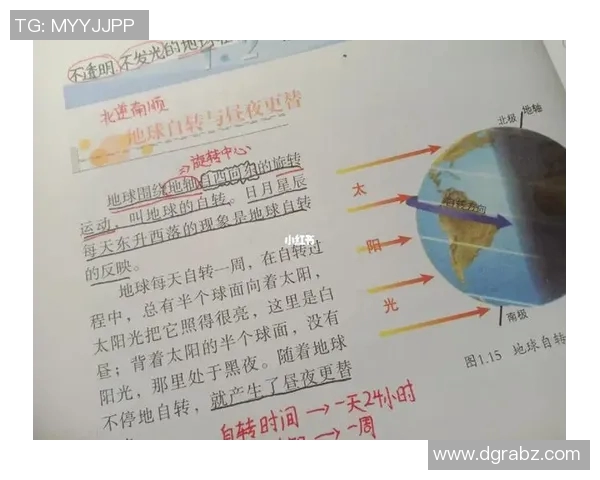 TG: MYYJJPP
不透明 不发光的地球
北逆南顺
地球自转与昼夜更替
旋转中心
地球围绕地轴自西向东的旋转
运动，叫地球的自转。日月星辰
每天东升西落的现象是地球自转
的反映。
地球每天自转一周，在自转过
程中，总有半个球面向着太阳，
太阳光把它照得很亮，这里是白
昼；背着太阳的半个球面，没有
阳光，那里处于黑夜。随着地球
不停地自转，就产生了昼夜更替
自转时间→一天24小时
→一周
小红书
北极
地轴
太
阳
光
自转方向
南极
图1.15 地球自转
www.dgrabz.com